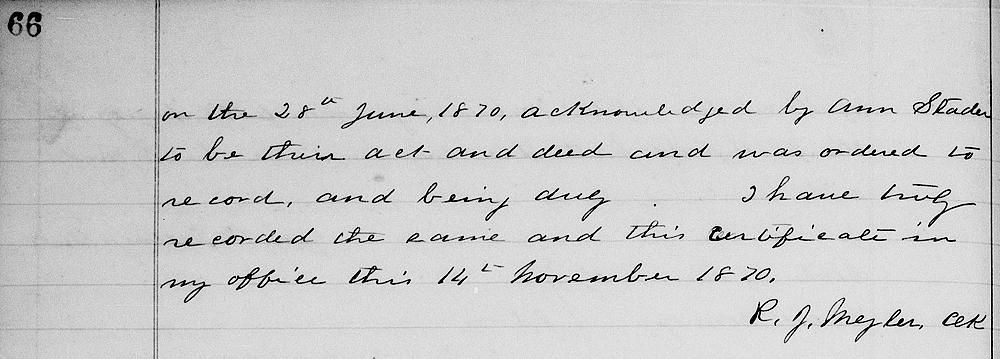 66
on the 28th June, 1870, acknowledged by Ann Stader
to be their act and deed and was ordered to
record, and being duly . I have truly
recorded the same and this certificate in
my office this 14th November 1870.
R. J. Meyler, Clk